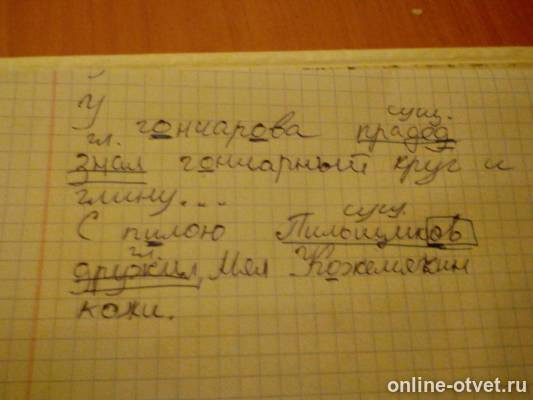 У
сущ.
гончарова прадед
гл.
знал гончарный круг и
глину...
сущ.
С пилою Пильщиков
гл.
дружил, Мял Кожемякин
кожи.
online-otvet.ru